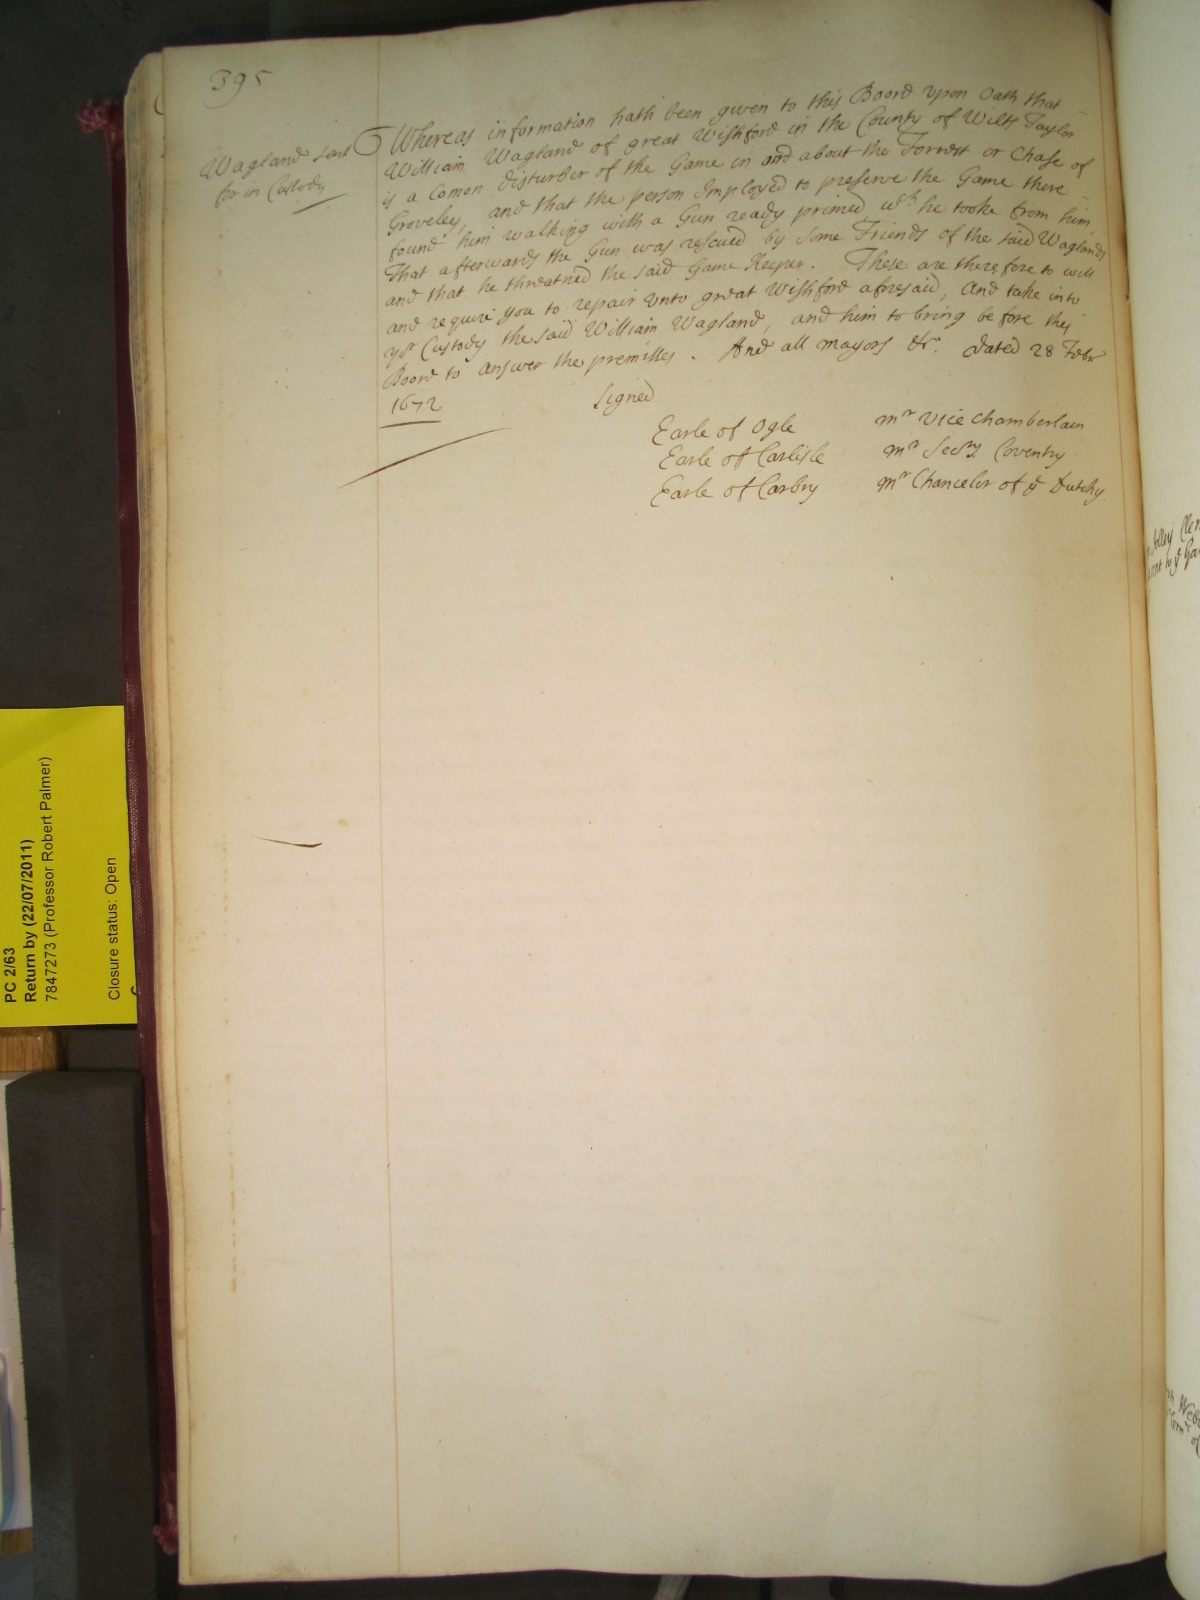 395
Wagland sent
for in Custody
Whereas information hath been given to this Board vpon Oath that
William Wagland of great Wishford in the County of Wilts Taylor
is a Comon disturber of the Game in and about the Forrest or Chase of
Groveley, and that the person Imployed to preserve the Game there
found him walking with a Gun ready primed wch he tooke from him,
That afterwards the Gun was rescued by some Friends of the said Waglands
and that he threatned the said Game Keeper. These are therefore to will
and require you to repair vnto great Wishford aforesaid, And take into
yor Custody the said William Wagland, and him to bring before this
Board to answer the premisses. And all mayors &c. dated 28 Febr
1672
Signed
Earle of Ogle mr Vice Chamberlain
Earle of Carlisle mr Secry Coventry
Earle of Carbry mr Chancelor of ye Dutchy
PC 2/63
Return by (22/07/2011)
7847273 (Professor Robert Palmer)
Closure status: Open